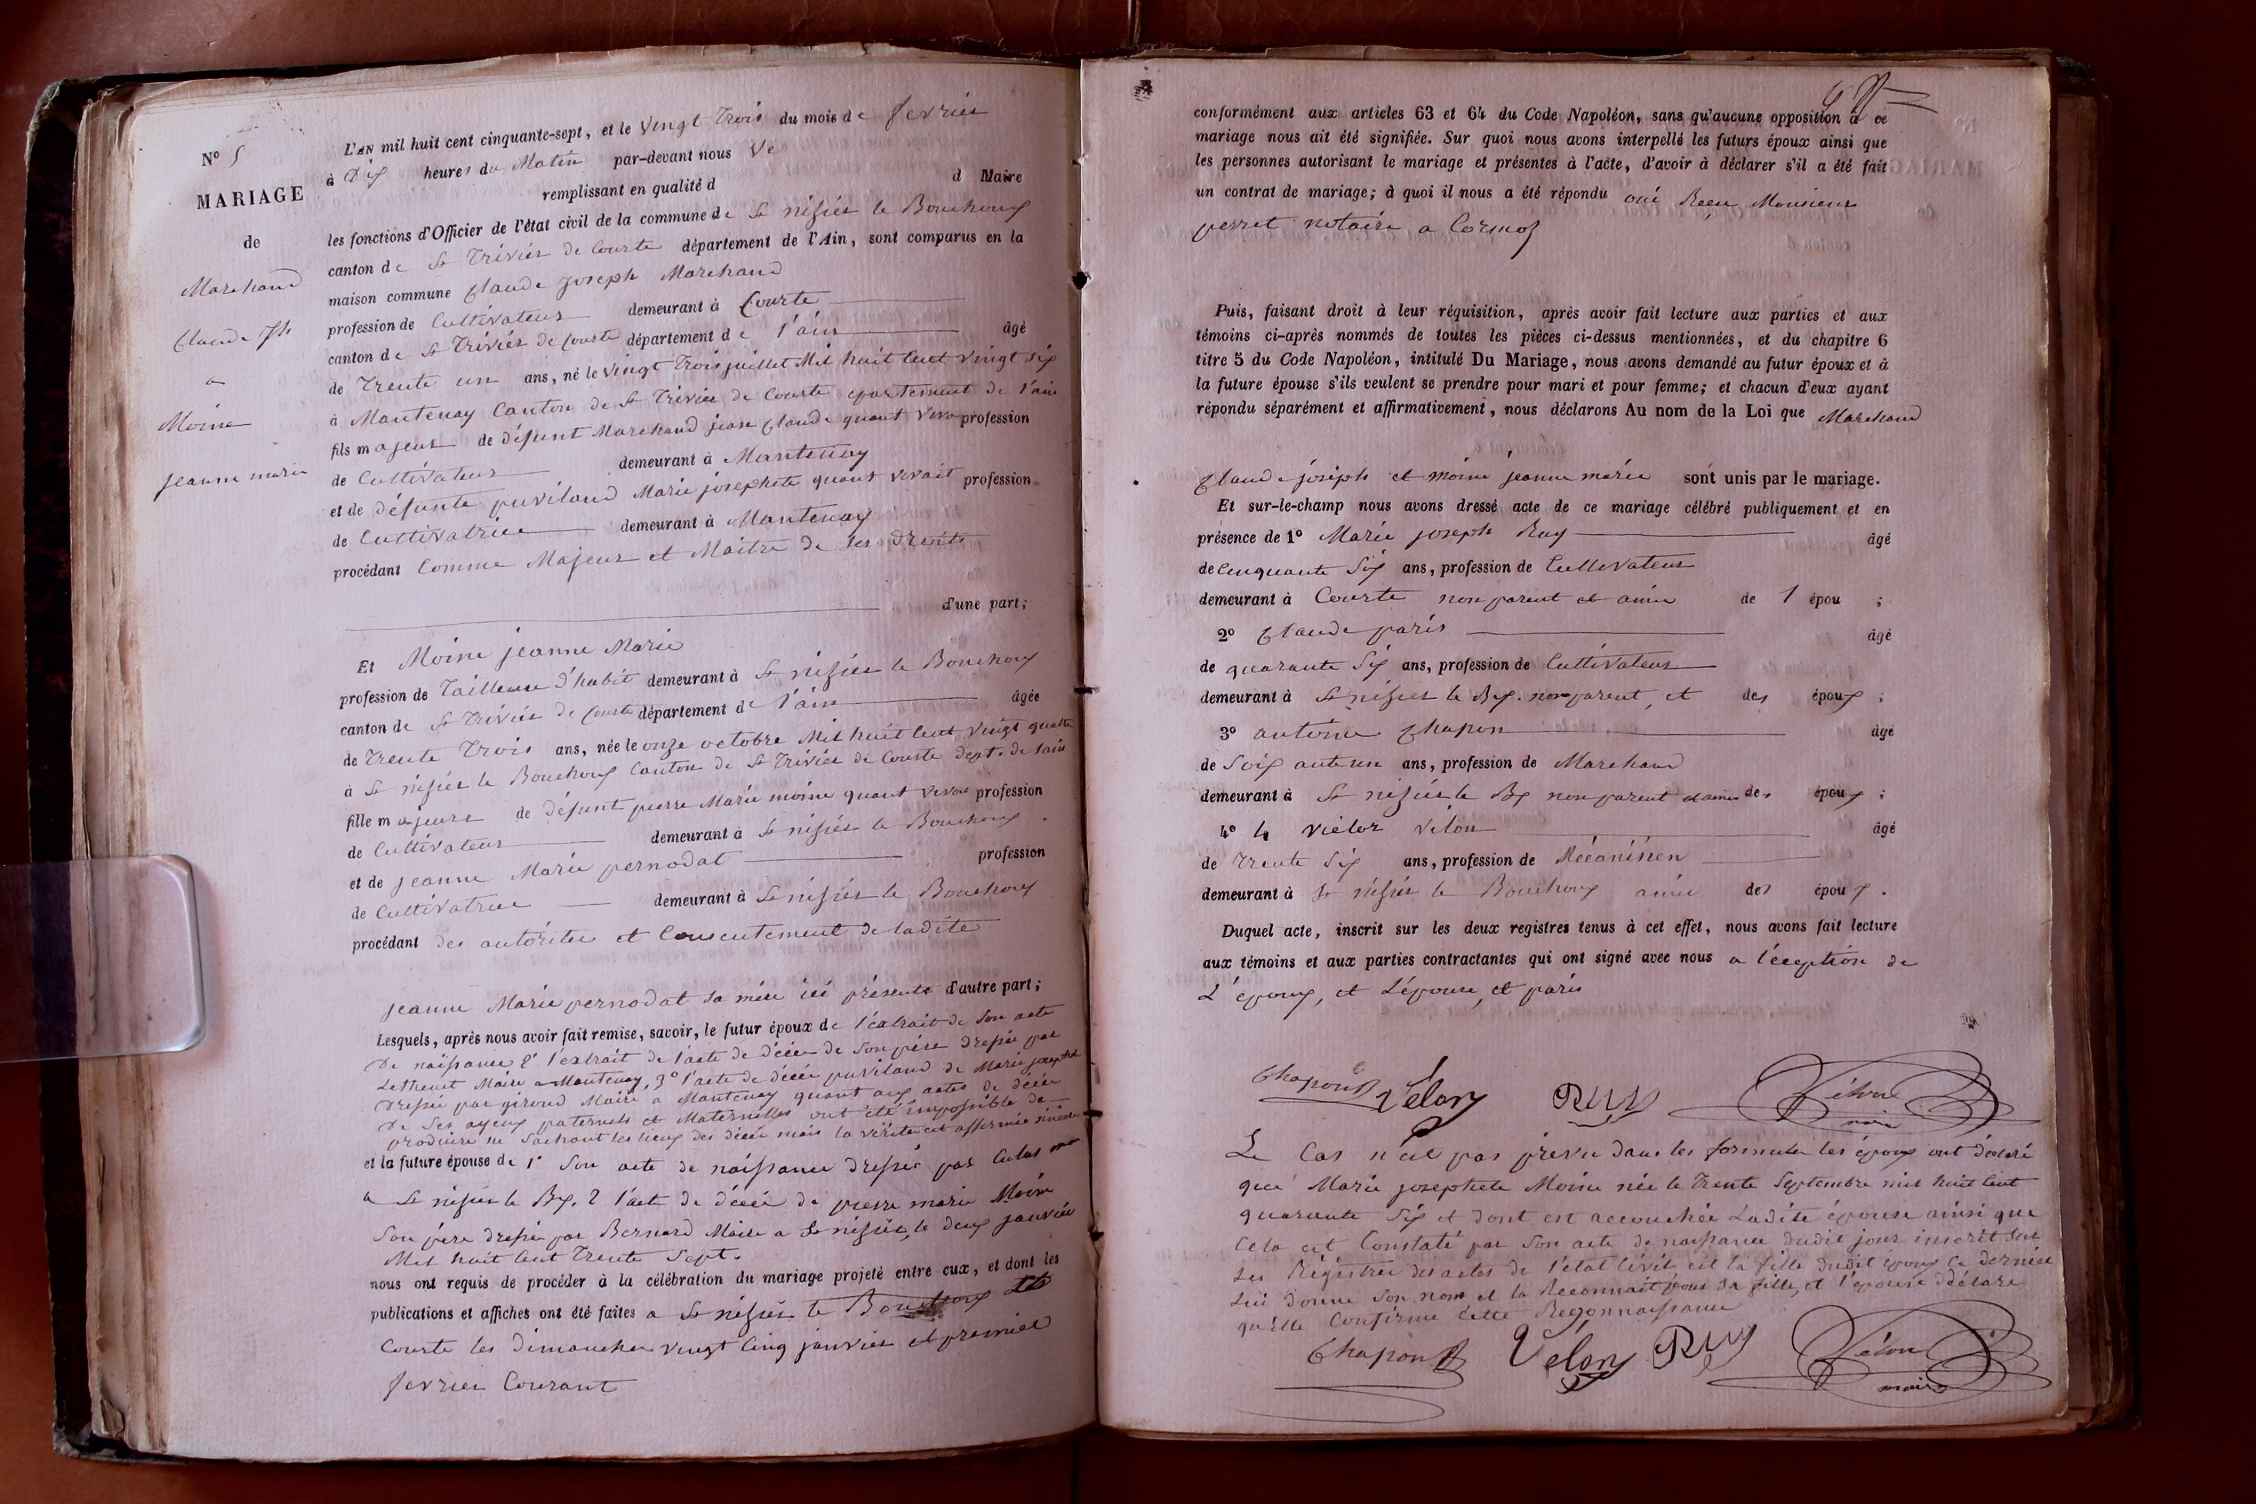 N° 5
MARIAGE
de
Marchand
Claude Jph
a
Moine
jeanne marie
L'AN mil huit cent cinquante-sept, et le vingt trois du mois de fevrier
à Dix heures du Matin par-devant nous Ve
remplissant en qualité d d Maire
les fonctions d'Officier de l'état civil de la commune de St nisier le Bouchoux
canton de St Trivier de Courte département de l'Ain, sont comparus en la
maison commune Claude joseph Marchand
profession de Cultivateur demeurant à Courte
canton de St Trivier de Courte département de l'ain âgé
de Trente un ans, né le vingt Trois juillet Mil huit Cent vingt six
à Mantenay Canton de St Trivier de Courte epartement de l'ain
fils majeur de défunt Marchand jean Claude quant vivo profession
de Cultivateur demeurant à Mantenay
et de défunte puvilland Marie josephete quant vivait profession
de Cultivatrice demeurant à Mantenay
procédant Comme Majeur et Maitre de ses droits
d'une part;
Et Moine jeanne Marie
profession de Tailleuse d'habit demeurant à St nisier le Bouchoux
canton de St Trivier de Courte département de l'ain âgée
de Trente Trois ans, née le onze octobre Mil huit Cent vingt quatre
à St nisier le Bouchoux Canton de St Trivier de Courte dept. de l'ain
fille majeure de défunt pierre Marie moine quant vivo profession
de Cultivateur demeurant à St nisier le Bouchoux
et de jeanne Marie pernodat profession
de Cultivatrice demeurant à St nisier le Bouchoux
procédant des autorités et Consentement de ladite
jeanne Marie pernodat sa mére ici présente d'autre part;
Lesquels, après nous avoir fait remise, savoir, le futur époux de l'extrait de son acte
De naissance 2° l'extrait de l'acte de décée de son père dressé par
Maire a Mantenay, 3° l'acte de décée puviland de Marie josephete
dressée par giroud Maire a Mantenay quant aux actes de décée
De Ses ayeux paternels et Maternelles ont été impossible de
produire ne sachant les lieux des décée mais la vérité est affirmée
et la future épouse de 1° Son acte de naissance dressée par
a St nisier le Bx. 2 l'acte de décée de pierre marie Moine
Son père dressée par Bernard Maire a St nisier, le deux janvier
Mil huit Cent Trente Sept.
nous ont requis de procéder à la célébration du mariage projeté entre eux, et dont les
publications et affiches ont été faites a St nisier le Bouchoux et
Courte les dimanches vingt Cinq janvier et premier
fevrier Courant
conformément aux articles 63 et 64 du Code Napoléon, sans qu'aucune opposition à ce
mariage nous ait été signifiée. Sur quoi nous avons interpellé les futurs époux ainsi que
les personnes autorisant le mariage et présentes à l'acte, d'avoir à déclarer s'il a été fait
un contrat de mariage; à quoi il nous a été répondu oui Recu Monsieur
perret notaire a Cormoz
Puis, faisant droit à leur réquisition, après avoir fait lecture aux parties et aux
témoins ci-après nommés de toutes les pièces ci-dessus mentionnées, et du chapitre 6
titre 5 du Code Napoléon, intitulé Du Mariage, nous avons demandé au futur époux et à
la future épouse s'ils veulent se prendre pour mari et pour femme; et chacun d'eux ayant
répondu séparément et affirmativement, nous déclarons Au nom de la Loi que Marchand
Claude joseph et moine jeanne marie sont unis par le mariage.
Et sur-le-champ nous avons dressé acte de ce mariage célébré publiquement et en
présence de 1° Marie joseph Ruy âgé
de Cinquante Six ans, profession de Cultivateur
demeurant à Courte non parent et amie de l épou ;
2° Claude paris âgé
de quarante Six ans, profession de Cultivateur
demeurant à St nisier le Bx. non parent, et des époux ;
3° antoine Chapon âgé
de Soix ante un ans, profession de Marchand
demeurant à St nisier le Bx non parent et amie des époux ;
4° 4 victor vélon âgé
de Trente Six ans, profession de Mécanicien
demeurant à St nisier le Bouchoux amie des époux .
Duquel acte, inscrit sur les deux registres tenus à cet effet, nous avons fait lecture
aux témoins et aux parties contractantes qui ont signé avec nous a l'éxeption de
L'époux, et L'épouse, et paris
Chapon Vélon RUY Vélon
maire
Le Cas n'est pas prévu dans les formules les époux ont déclaré
que Marie josephete Moine née le Trente Septembre mil huit Cent
quarante Six et dont est accouchée Ladite épouse ainsi que
Cela est Constaté par Son acte de naissance dudit jour inscrit Sur
Les Régistres des actes de l'état Civil est la fille dudit époux Ce dernier
Lui donne Son nom et la Reconnait pour Sa fille, et l'épouse déclare
qu'elle Confirme Cette Reconnaissance
Chapon Vélon RUY Vélon
maire